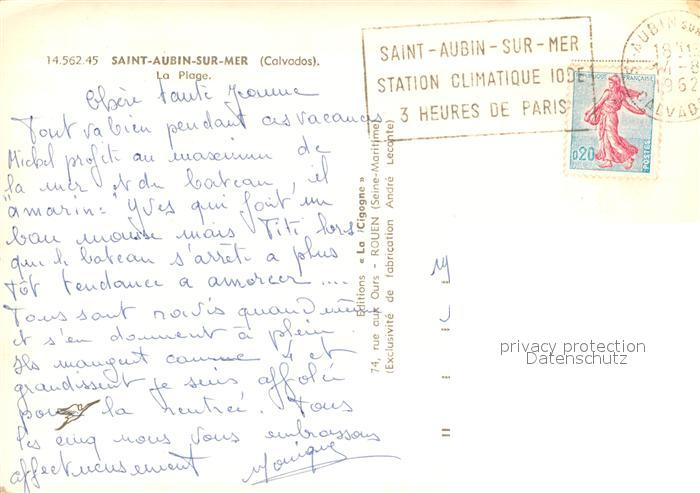 14.562.45 SAINT-AUBIN-SUR-MER (Calvados).
La Plage.
Chère tante Jeanne
Tout va bien pendant ces vacances
Michel profite au maximum de
la mer et du bateau, il
"amarin=" Yves qui fait un
bon mousse mais Titi lors-
que le bateau s'arrête a plus
tôt tendance a amorcer ....
Tous sont ravis quand même
et s'en donnent à plein
Ils mangent comme 4 et
grandissent je suis affolée
pour la rentrée. Tous
les cinq nous vous embrassons
affectueusement Monique
SAINT-AUBIN-SUR-MER
STATION CLIMATIQUE IODE
3 HEURES DE PARIS
ST-AUBIN SUR
18H
14-8
1962
CALVAD
REPUBLIQUE FRANÇAISE
0,20
POSTES
Editions « La Cigogne »
74, rue aux Ours - ROUEN (Seine-Maritime)
(Exclusivité de fabrication André Leconte)
M
privacy protection
Datenschutz